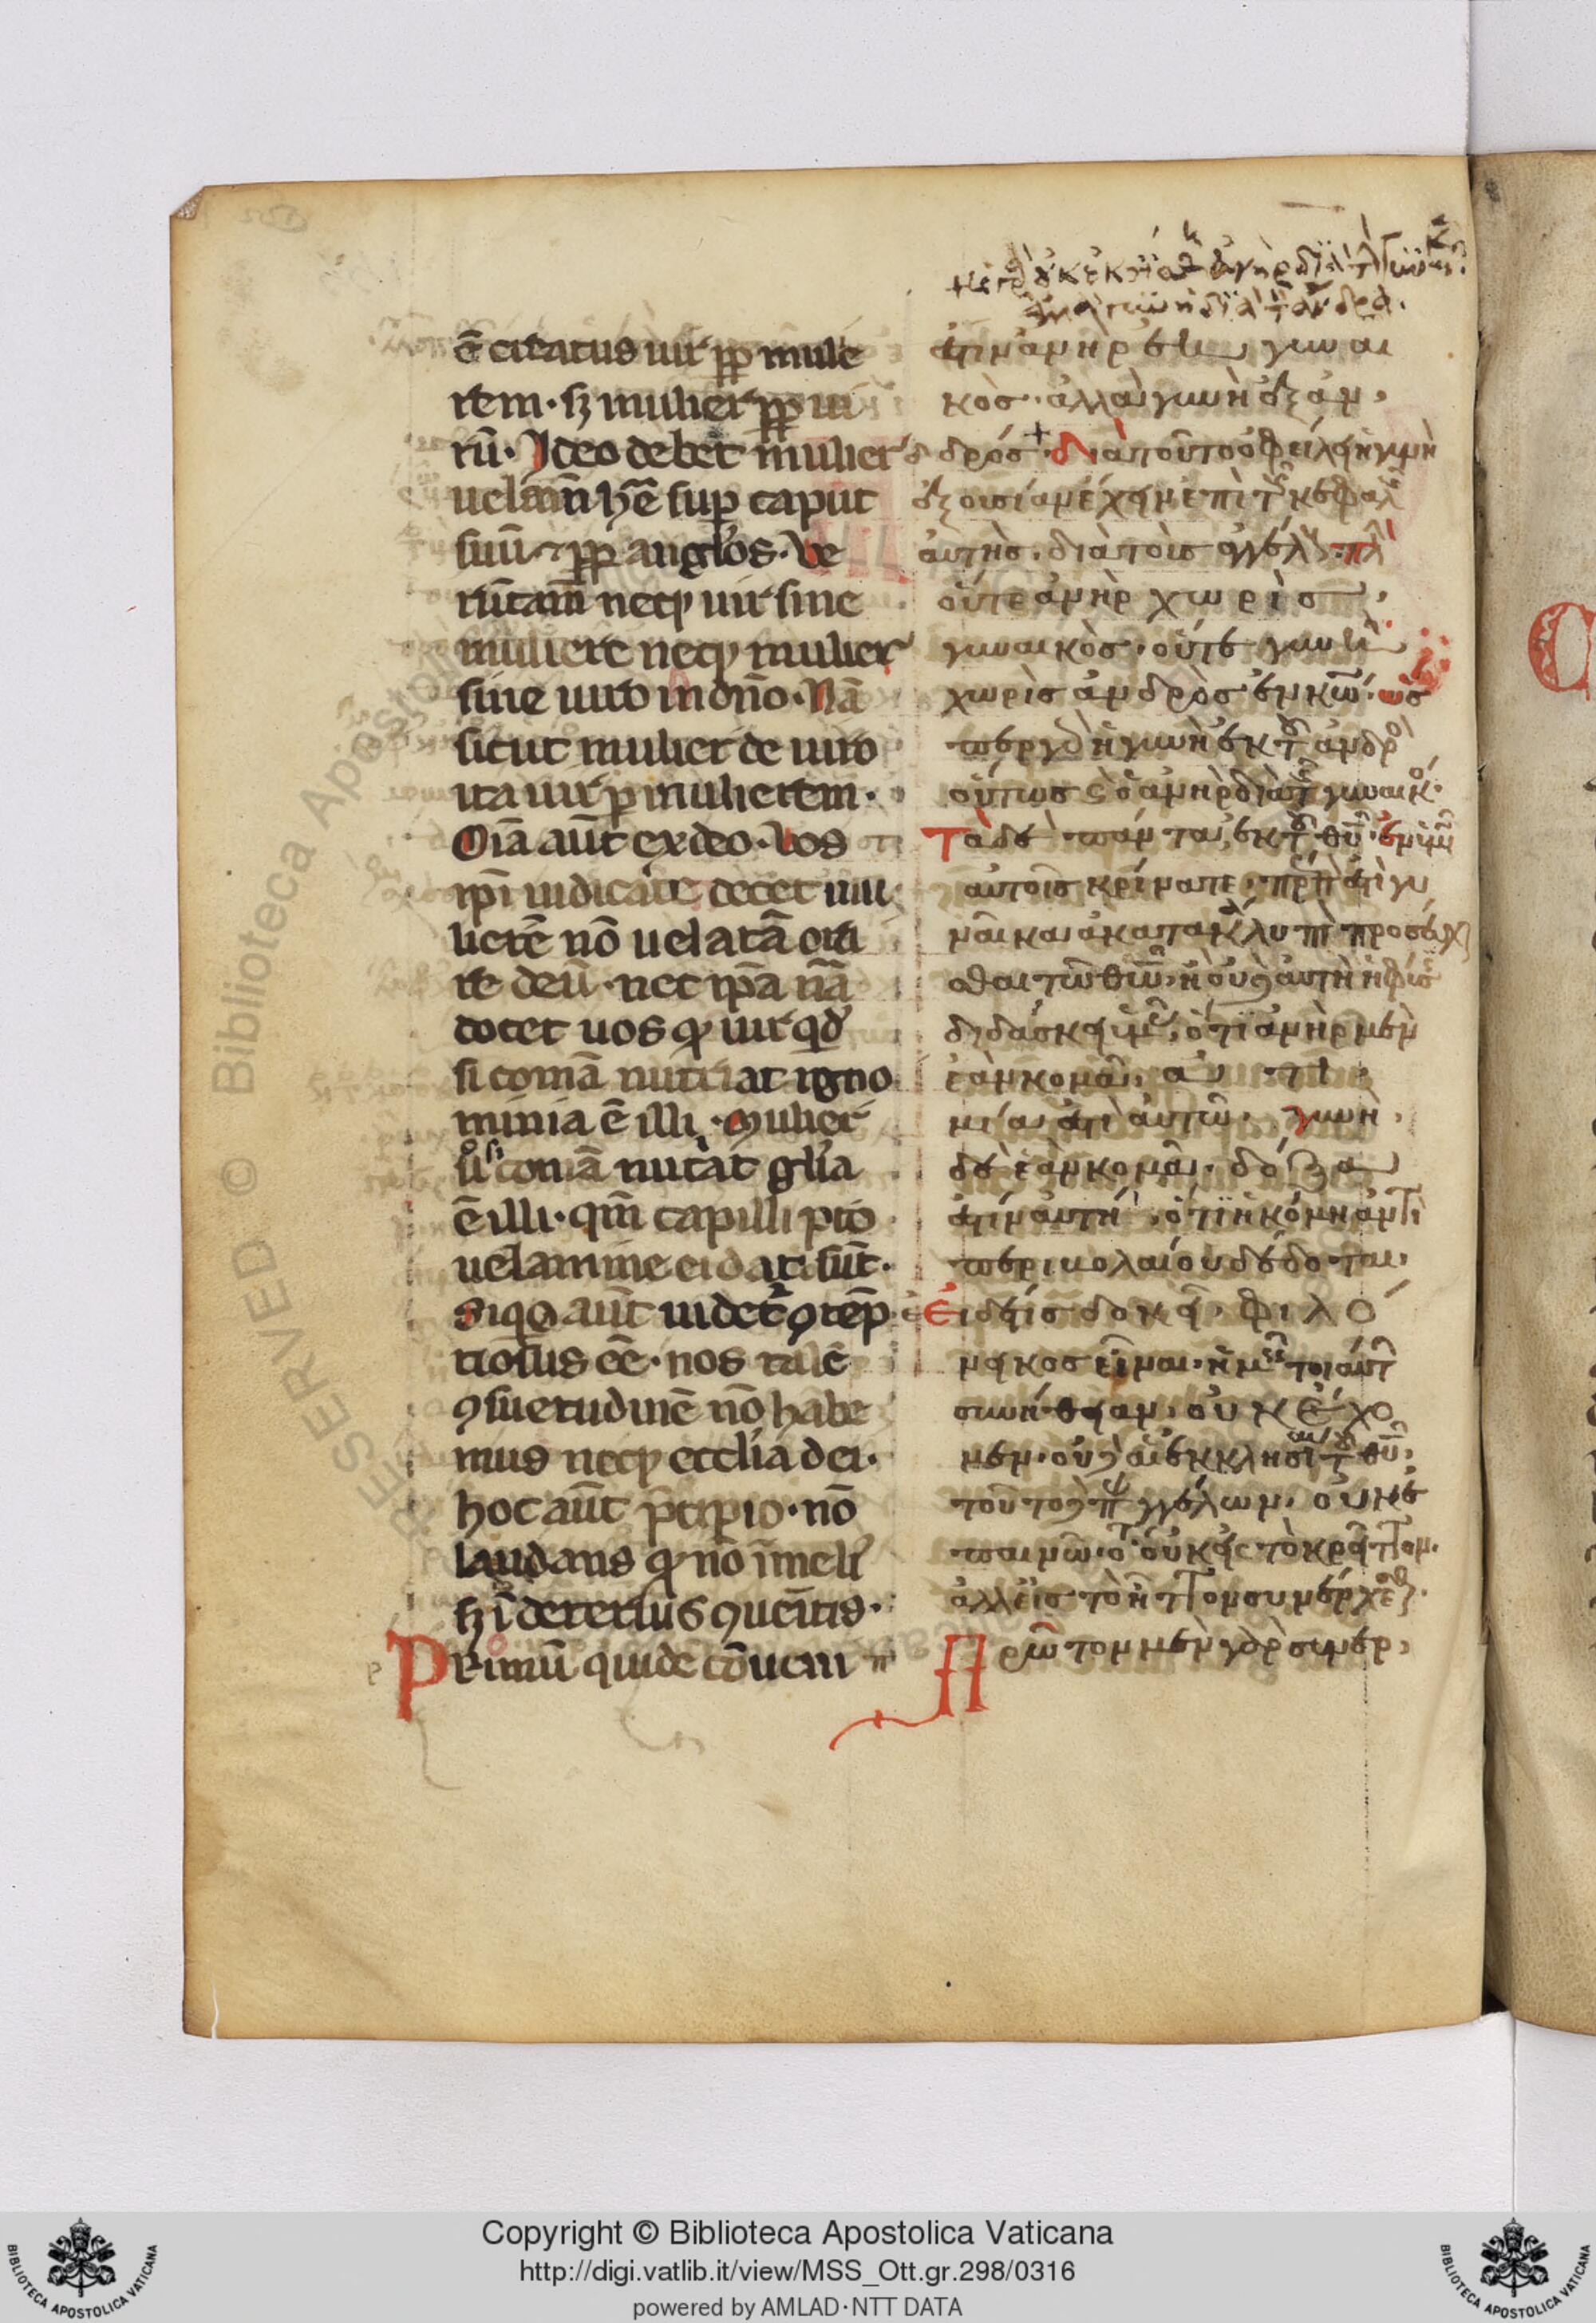 ē creatus uir ꝓp mulie
rem · sꝫ mulier ꝓp ui
rū · Ideo debet mulier
uelam̄ hr̄e sup caput
suū · ꝓp angl'os · Ve
rūtam̄ necꝫ uir sine
muliere necꝫ mulier
sine uiro in dn̄o · Nā
sicut mulier de uiro
ita uir p mulierem ·
Oīa aūt ex deo · Vos
ip̄i iudicate decet mu
lierē nō uelatā ora
re deū · nec ip̄a nā
docet uos qꝫ uir qd'
si comā nutriat igno
minia ē illi · Mulier
u° si comā nut̀at gl'ia
ē illi · qm̄ capilli pro
uelamine ei dati sūt ·
Siqs aūt uidet᷑ ꝯtēp
tiosus eē · nos talē
ꝯsuetudinē nō habe
mus necꝫ eccl'ia dei ·
hoc aūt p̄cipio · nō
laudans qꝫ nō ī meli'
sꝫ ī deterius ꝯuenitis ·
Primū quidē cōueni
ἐστὶν ἀνὴρ ἐκ γυναι
κὸς · ἀλλὰ γυνὴ ἐξ ἀν
δρός + διὰ τοῦτο ὀφείλει ἡ γυνὴ
ἐξουσίαν ἔχειν ἐπὶ τ κεφαλ
αὐτῆς · διὰ τοὺς ἀγγέλ · πλ
οὔτε ἀνὴρ χωρὶς
γυναικὸς · οὔτε γυνὴ
χωρὶς ἀνδρὸς ἐν κω̄ · ὡς
περ γὰρ ἡ γυνὴ ἐκ τ ἀνδρ
οὕτως ϛ ὁ ἀνὴρ διὰ τ γυναικ ·
Τὰ δὲ πάντα ἐκ τ θῡ · ἐν ὑμ
αὐτοῖς κρίνατε · πρέπ ἐστὶ γυ
ναῖκα ἀκατακάλυπτ προσεύχ
σθαι τῶ θω̄ · ἢ οὐδ αὐτὴ ἡ φύσ
διδάσκει ὑμ · ὅτι ἀνὴρ μὲν
ἐὰν κομᾶ · ἀ τι
μία ἐστὶ αὐτῶ · γυνὴ
δὲ ἐὰν κομᾶ · δόξα
ἐστὶν αὐτῆ · ὅτι ἡ κόμη ἀντὶ
περιβολαίου δέδοται ·
Εἰ δέ τις δοκεῖ φιλό
νεικος εἶναι · ἡμ τοιαύτ
συνήθειαν οὐκ ἔχο
μεν · οὐδ αἱ ἐκκλησί τ θῡ ·
τοῦτο δ π γγέλων · οὐκ ἐ
παινῶ · ὅτ οὐκ εἰς τὸ κρεῖττον ·
ἀλλ εἰς τὸ ἧττον συνέρχεσθ ·
Πρῶτον μὲν γὰρ συνερ
Copyright © Biblioteca Apostolica Vaticana
http://digi.vatlib.it/view/MSS_Ott.gr.298/0316
powered by AMLAD·NTT DATA